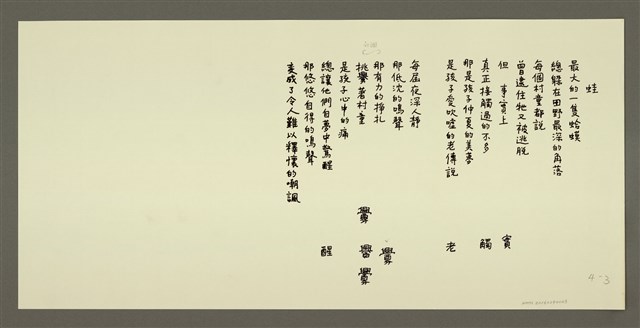 蛙
最大的一隻蛤蟆
總躲在田野最深的角落
每個村童都說
曾逮住牠又被逃脫
但 事實上
真正接觸過的不多
那是孩子仲夏的美夢
是孩子愛吹噓的老傳說
每屆夜深人靜
那低沈的鳴聲
那有力的掙扎
挑釁著村童
是孩子心中的痛
總讓他們自夢中驚醒
那悠悠自得的鳴聲
變成了令人難以釋懷的嘲諷
賓
觸
老
釁
釁
釁
釁
醒
4-3